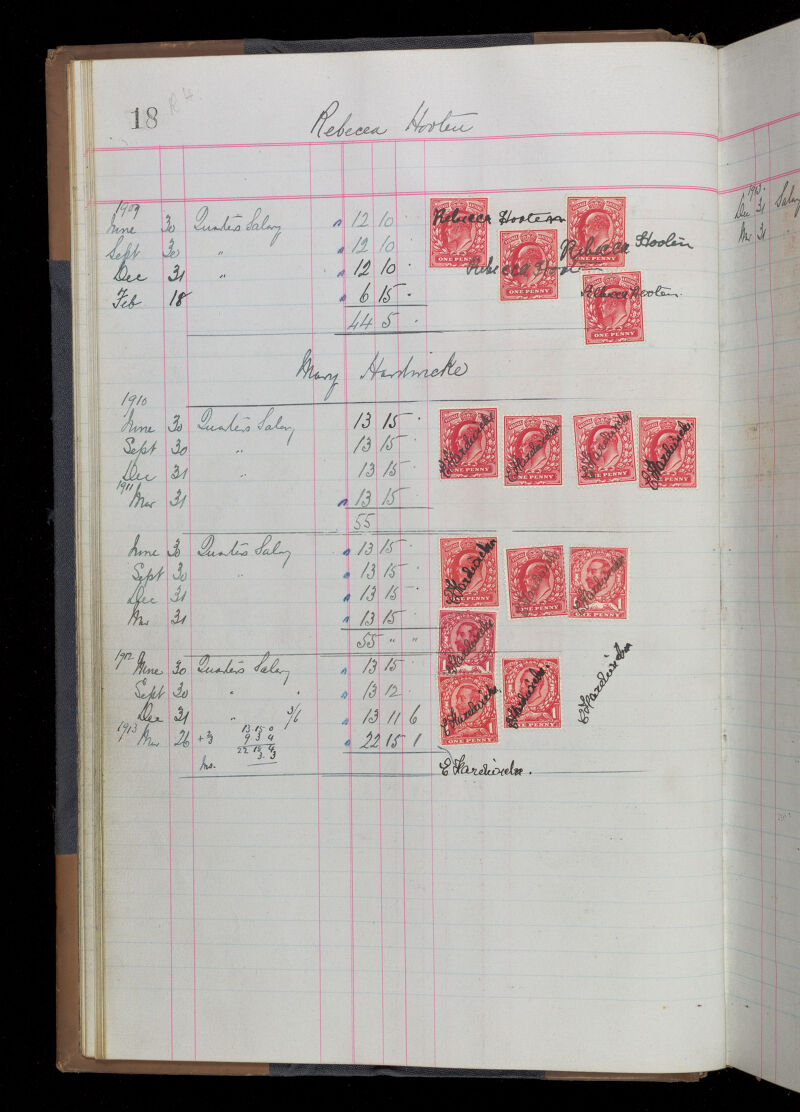 18 R H.
Rebecca Hooten
1909
June 30 Quarters Salary " 12 10 .
Sept 30 " " 12 10 .
Dec 31 " " 12 10 .
Feb 18 " 6 15 .
44 5 .
Rebecca Hooten
Rebecca Hooten
Rebecca Hooten
Rebecca Hooten
ONE PENNY
ONE PENNY
ONE PENNY
ONE PENNY
Mary Hardwicke
1910
June 30 Quarters Salary 13 15 .
Sept 30 " 13 15 .
Dec 31 " 13 15 .
1911
Mar 31 " 13 15 .
55
E Hardwicke
E Hardwicke
E Hardwicke
E Hardwicke
ONE PENNY
ONE PENNY
ONE PENNY
ONE PENNY
June 30 Quarters Salary " 13 15 .
Sept 30 " " 13 15 .
Dec 31 " 13 15 .
Mar 31 " 13 15 .
55 " "
E Hardwicke
E Hardwicke
E Hardwicke
E Hardwicke
ONE PENNY
ONE PENNY
1912
June 30 Quarters Salary " 13 15 .
Sept 30 " " " 13 12 .
Dec 31 " 3/6 " 13 11 6
1913
Mar 26 +3 " 22 15 1
13 15 0
9 3 4
22 18 4
Ins. 3. 3
E Hardwicke
E Hardwicke
E Hardwicke
E Hardwicke.
ONE PENNY
ONE PENNY
Dec 31 Salary
Mar 31